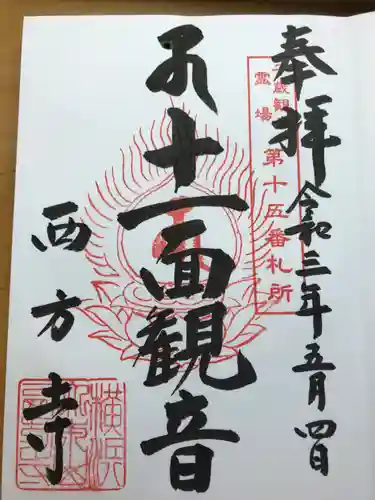 奉拝
令和三年五月四日
子歳観
霊場
第十五番札所
十一面観音
西方寺
横浜